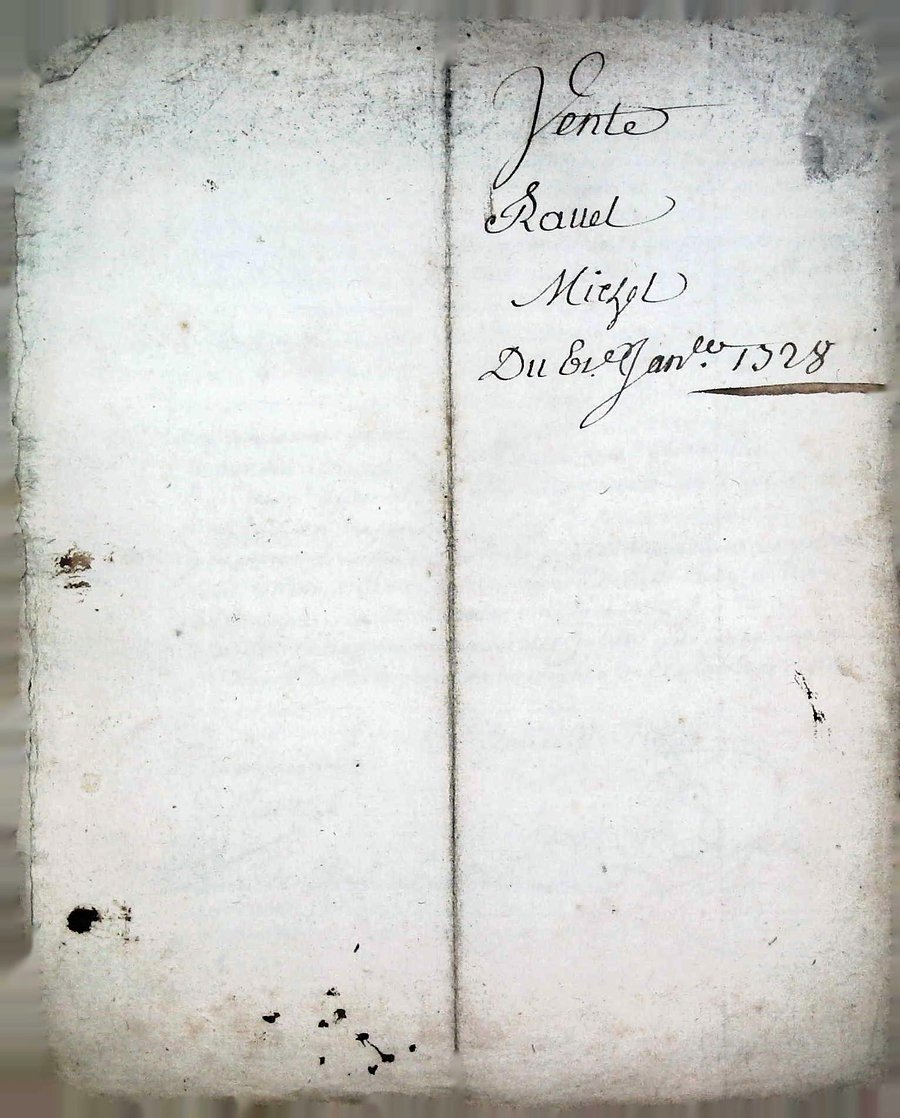 Vente
Rauel
Michel
Du Janer. 1328